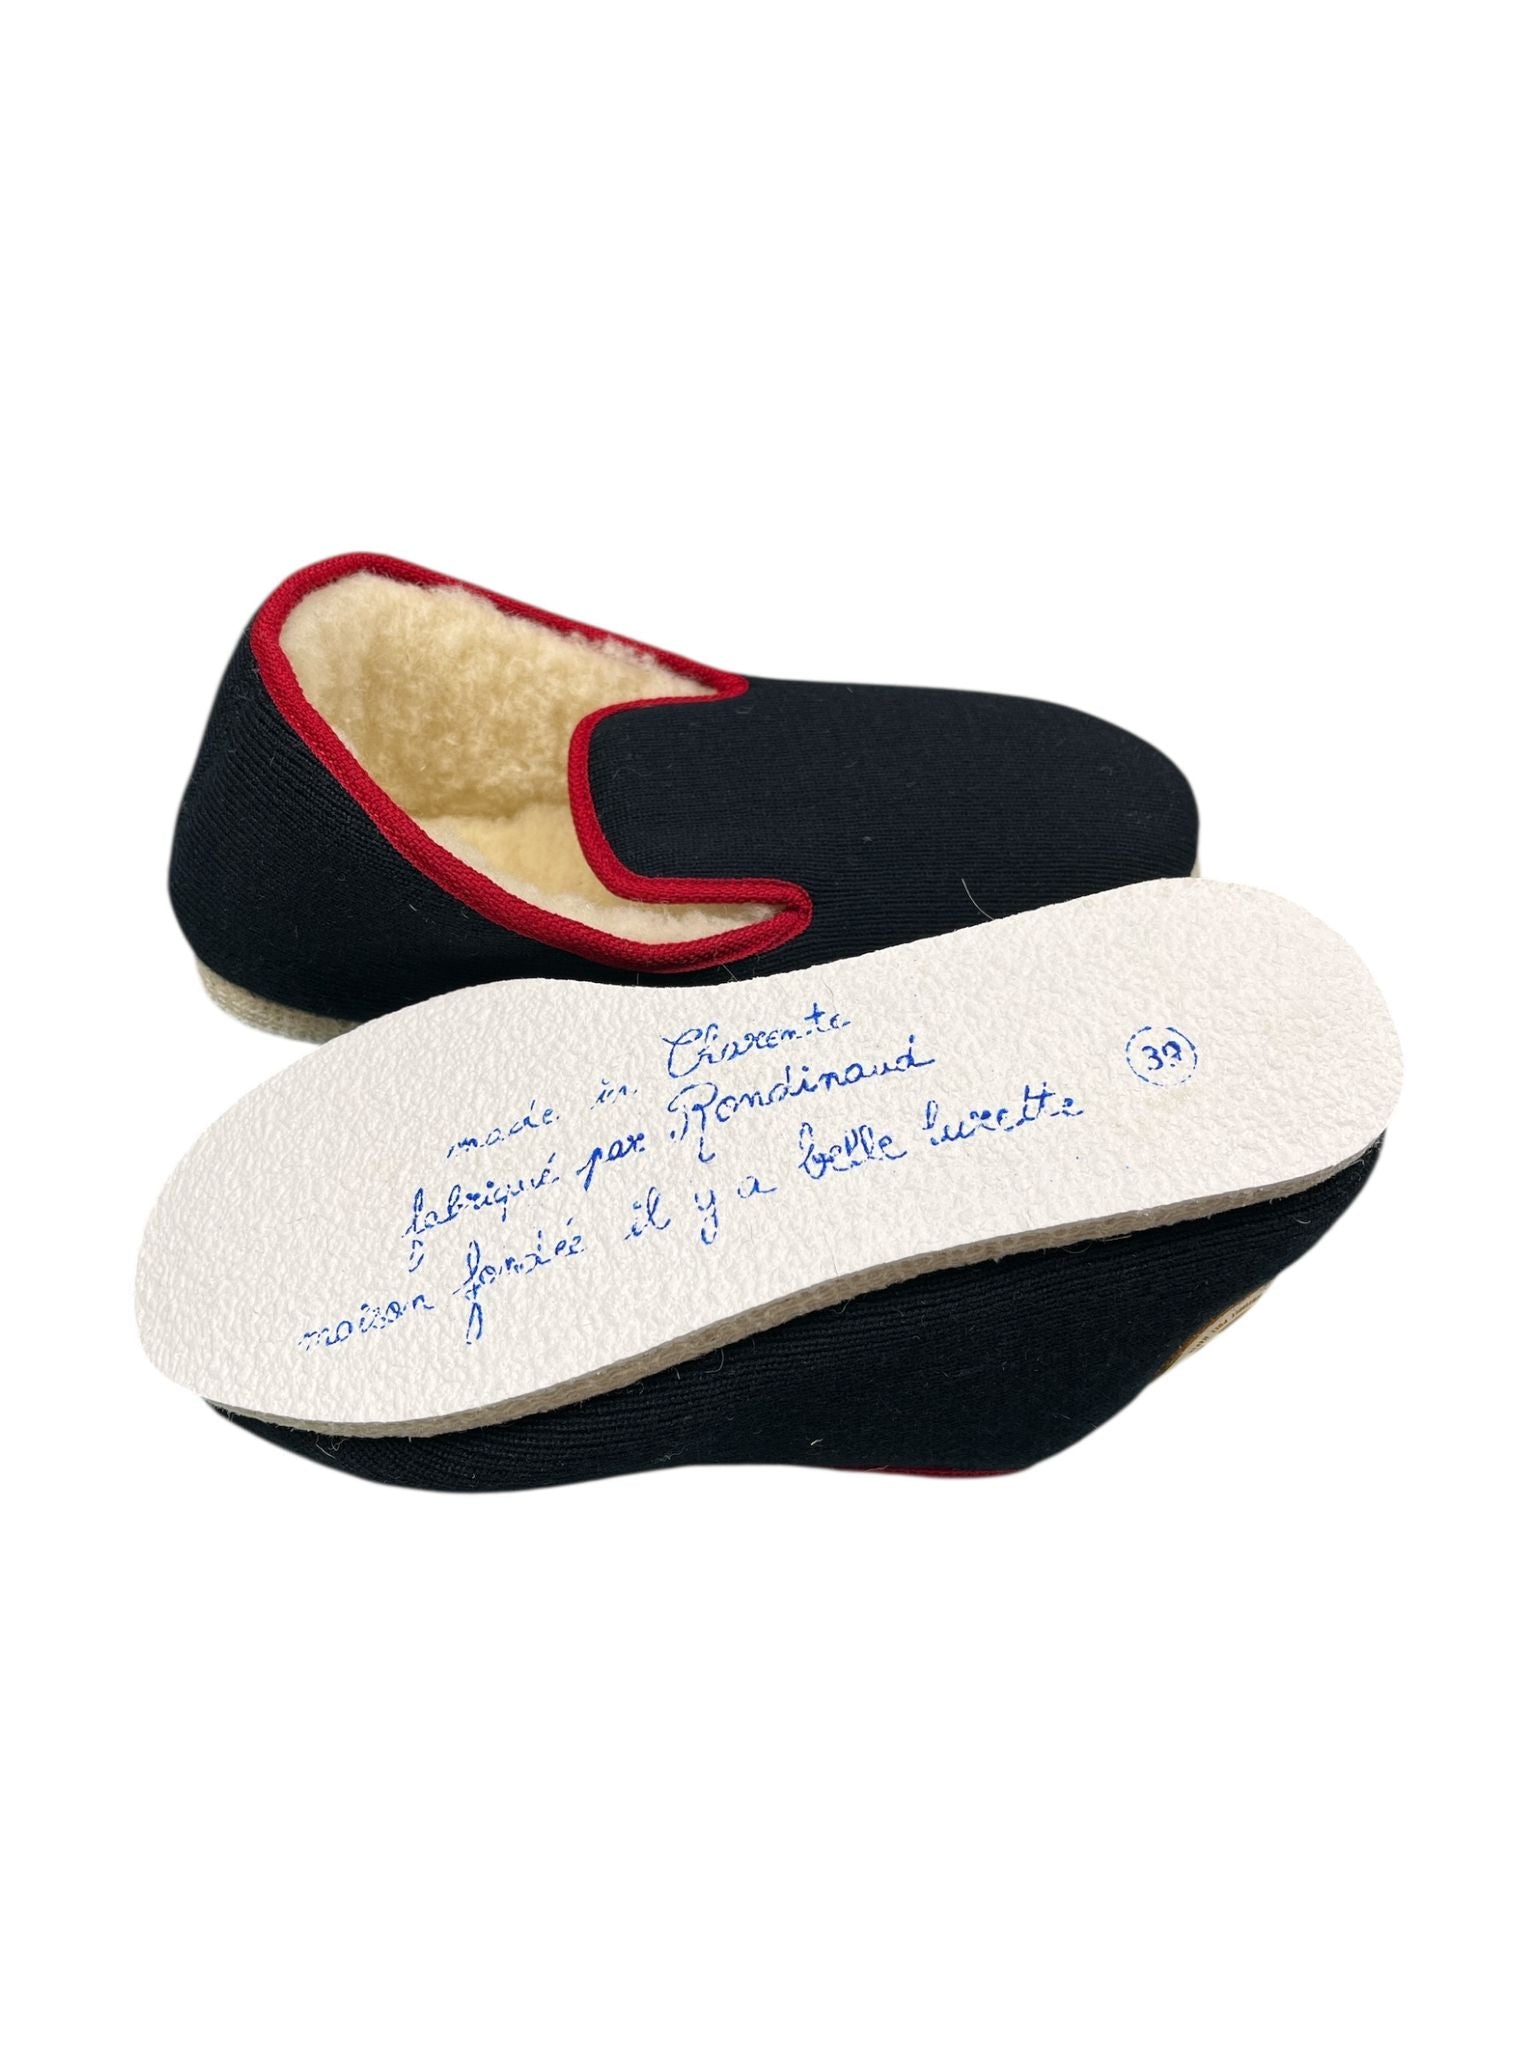 made in Charente
fabriqué par Rondinaud
maison fondée il y a belle lurette
39